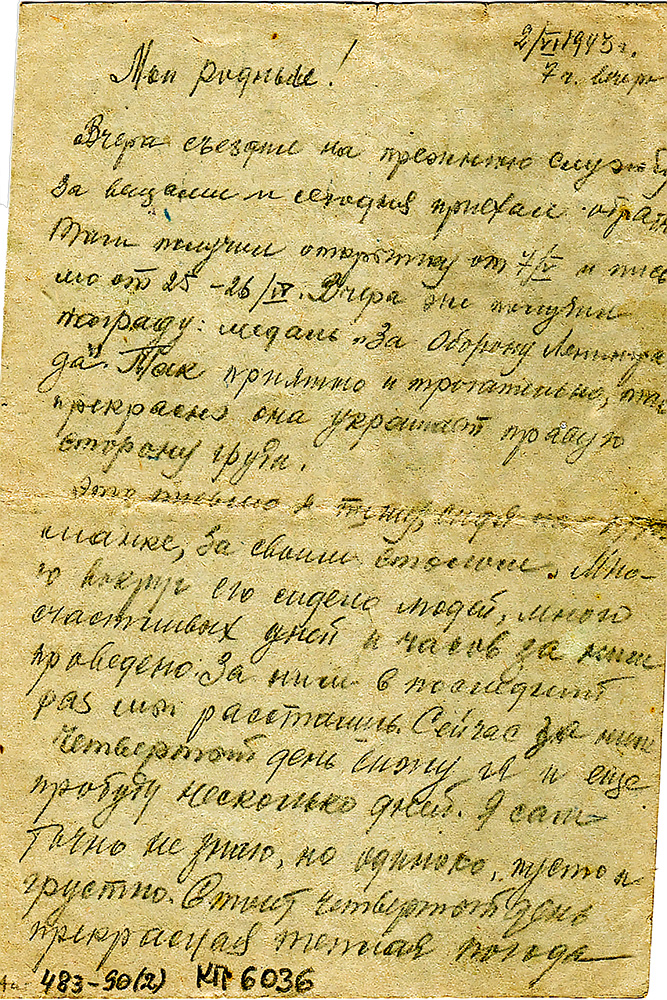 2/VI 1943 г.
7 г. вечера
Мои родные!
Вчера съездил на прежнюю службу
за вещами и сегодня приехал обратн
Там получил открытку от 7/V и пись
мо от 25-26/IV. Вчера же получил
награду: медаль „За Оборону Ленингра
да". Так приятно и трогательно,
прекрасно она украшает правую
сторону груди.
Это письмо я пишу, сидя на
за своим столом. Мно-
го вокруг его сидело людей, много
счастливых дней и часов за ним
проведено. За ним в последний
раз мы расстались. Сейчас за ним
четвертый день сижу я и еще
пробуду несколько дней. Я сам
точно не знаю, но одиноко, пусто и
грустно. Стоит четвертый день
прекрасная теплая погода
483-90(2) КП 6036